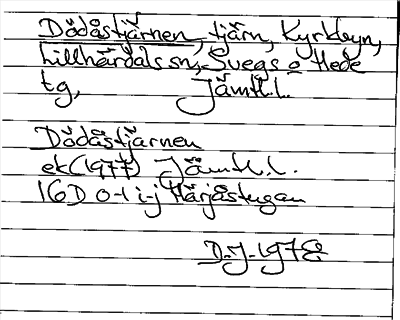 Dödåstjärnen, tjärn, Kyrkbyn,
Lillhärdals sn, Svegs o Hede
tg, Jämtl.l.
Dödåstjärnen
ek(1977) Jämtl.l.
16D 0-1 i-j Härjåstugan
D.J. 1978